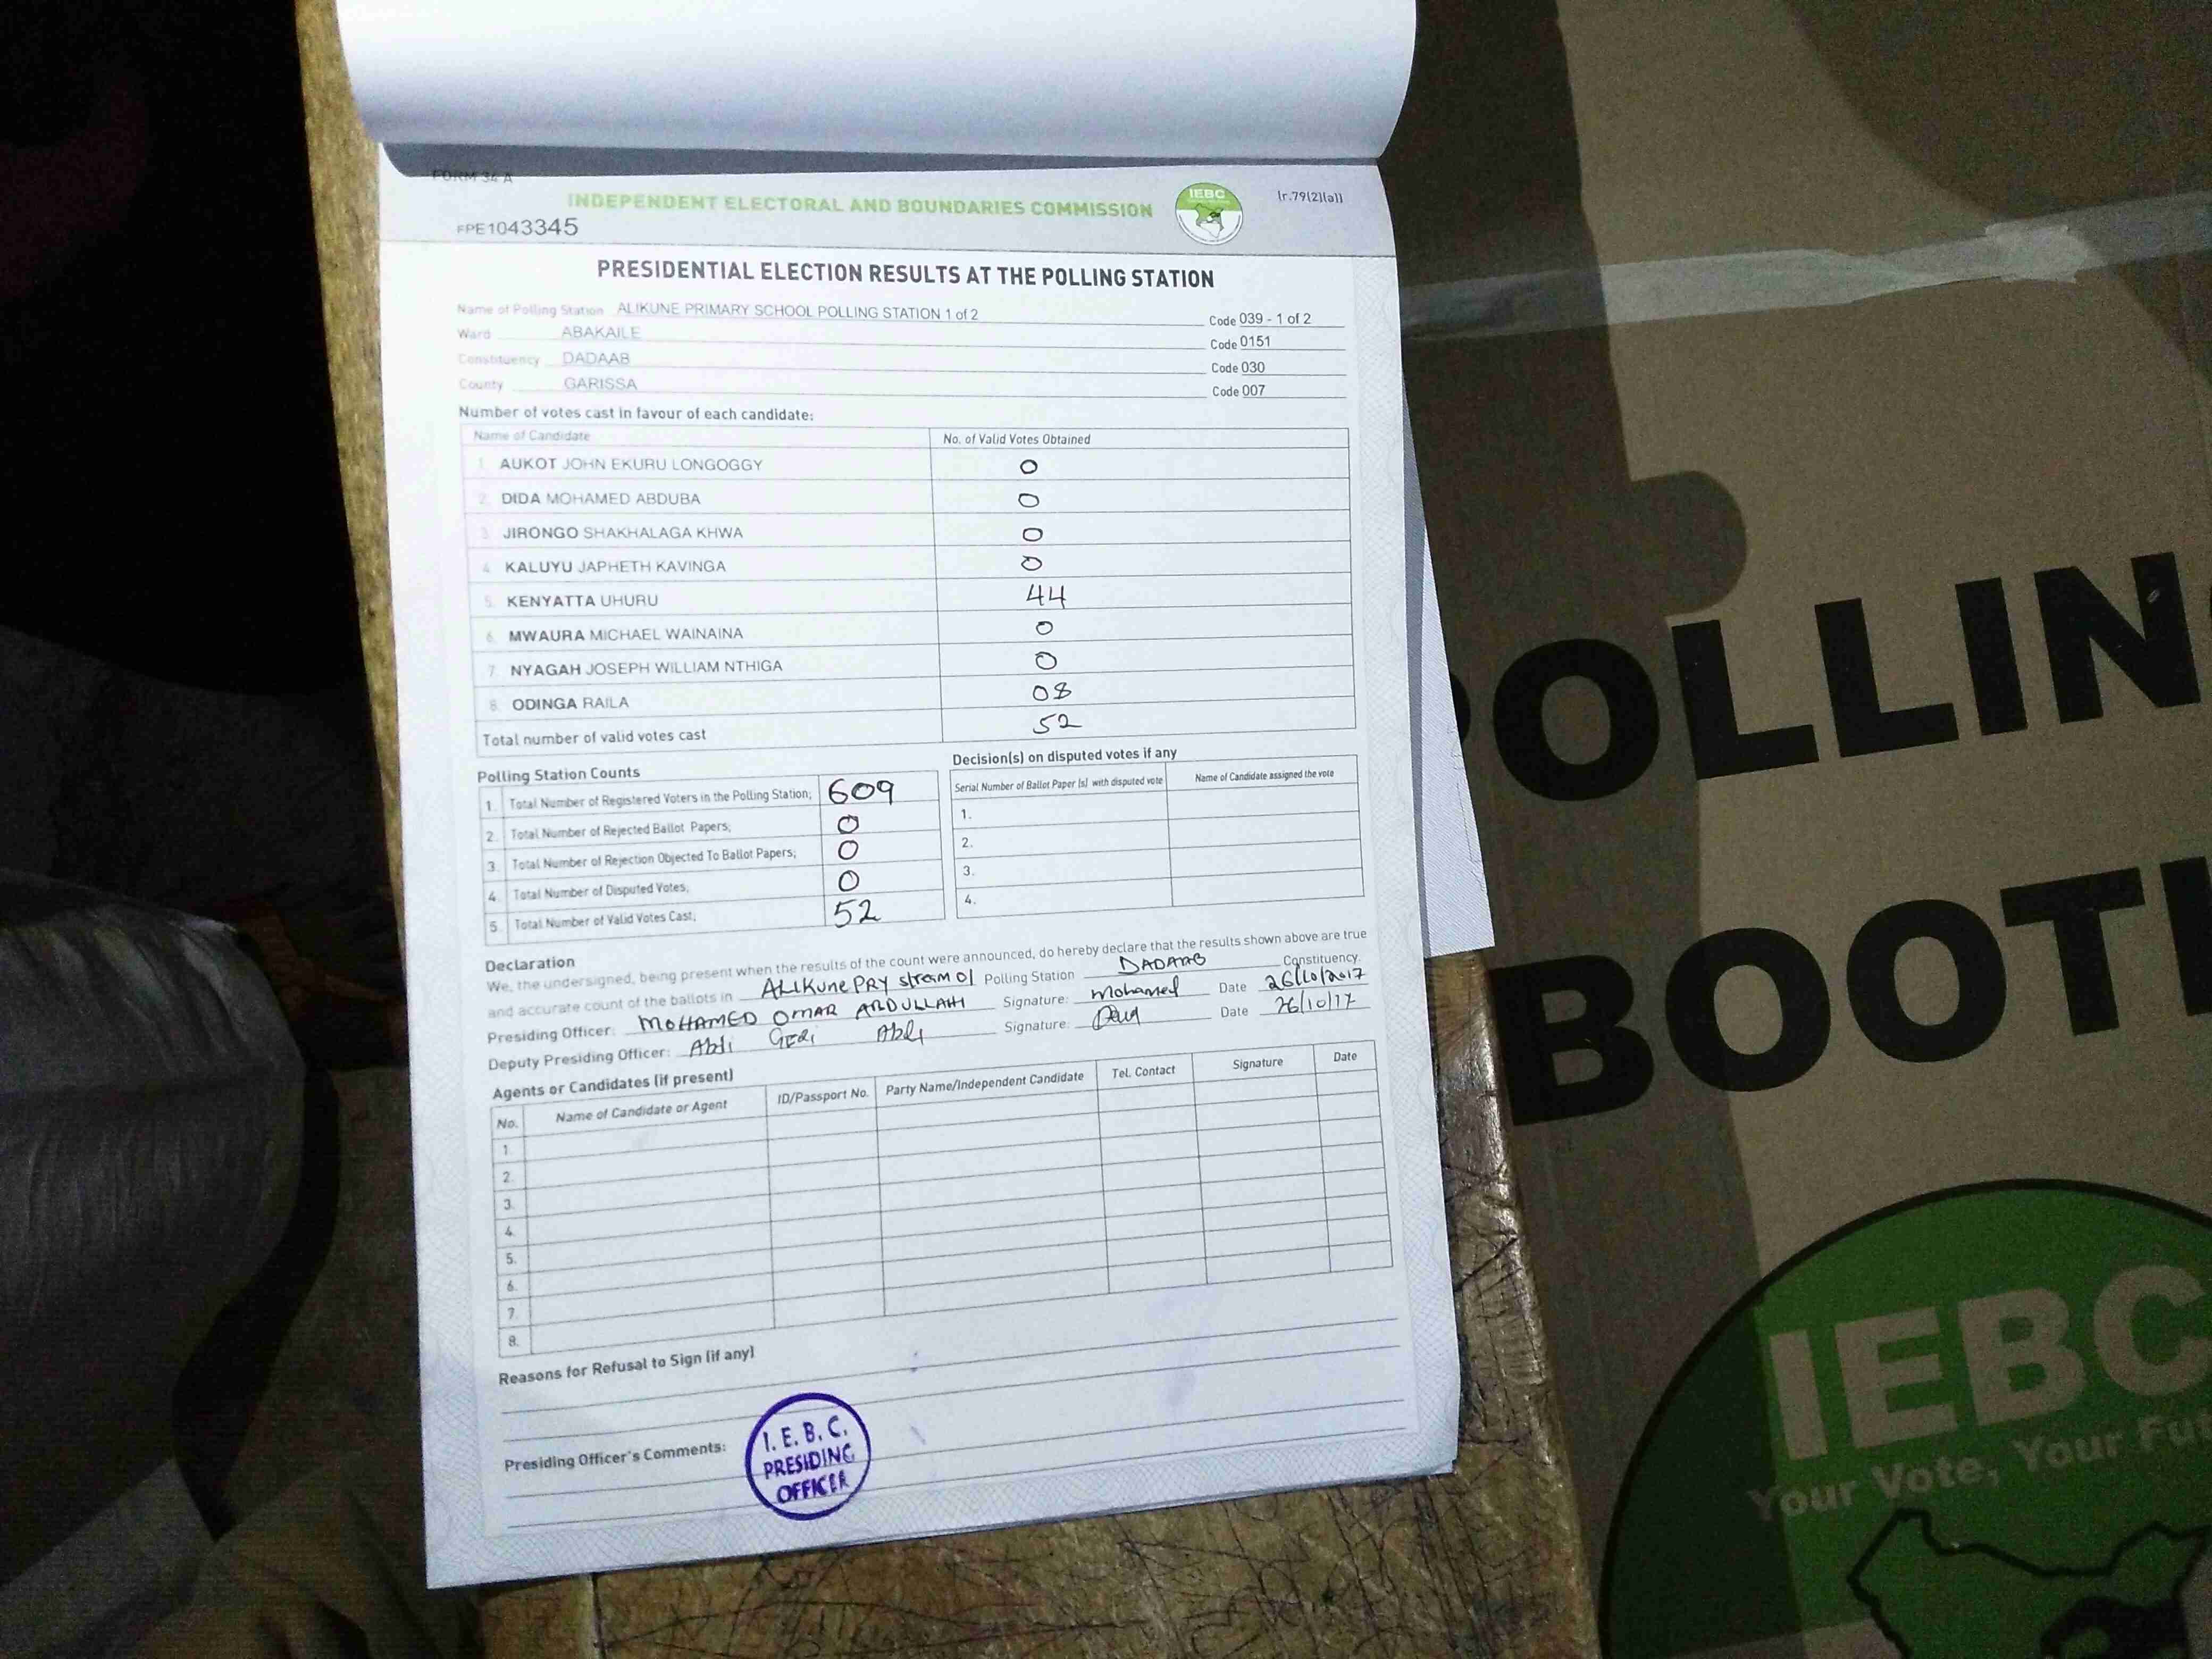 FORM 34 A
INDEPENDENT ELECTORAL AND BOUNDARIES COMMISSION
IEBC
(r.79(2)(a))
FPE1043345
PRESIDENTIAL ELECTION RESULTS AT THE POLLING STATION
Name of Polling Station ALIKUNE PRIMARY SCHOOL POLLING STATION 1 of 2 Code 039 - 1 of 2
Ward ABAKAILE Code 0151
Constituency DADAAB Code 030
County GARISSA Code 007
Number of votes cast in favour of each candidate:
Name of Candidate No. of Valid Votes Obtained
1. AUKOT JOHN EKURU LONGOGGY 0
2. DIDA MOHAMED ABDUBA 0
3. JIRONGO SHAKHALAGA KHWA 0
4. KALUYU JAPHETH KAVINGA 0
5. KENYATTA UHURU 44
6. MWAURA MICHAEL WAINAINA 0
7. NYAGAH JOSEPH WILLIAM NTHIGA 0
8. ODINGA RAILA 08
Total number of valid votes cast 52
Polling Station Counts
1. Total Number of Registered Voters in the Polling Station; 609
2. Total Number of Rejected Ballot Papers; 0
3. Total Number of Rejection Objected To Ballot Papers; 0
4. Total Number of Disputed Votes; 0
5. Total Number of Valid Votes Cast; 52
Decision(s) on disputed votes if any
Serial Number of Ballot Paper (s) with disputed vote Name of Candidate assigned the vote
1.
2.
3.
4.
Declaration
We, the undersigned, being present when the results of the count were announced, do hereby declare that the results shown above are true
and accurate count of the ballots in ALIKune PRY stream 01 Polling Station DADAAB Constituency.
Presiding Officer: MOHAMED OMAR ABDULLAHI Signature: Mohamed Date 26/10/2017
Deputy Presiding Officer: Abdi GEDi Abdi Signature: Date 26/10/17
Agents or Candidates (if present)
No. Name of Candidate or Agent ID/Passport No. Party Name/Independent Candidate Tel. Contact Signature Date
1.
2.
3.
4.
5.
6.
7.
8.
Reasons for Refusal to Sign (if any)
Presiding Officer's Comments:
I. E. B. C.
PRESIDING
OFFICER
POLLIN
BOOTH
IEBC
Your Vote, Your Fut